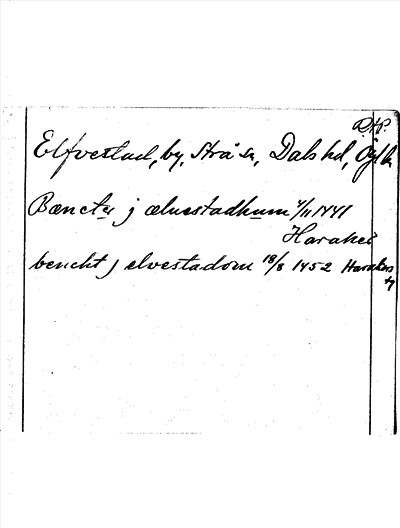 RAP.
Elfvestad, by, Strå sn, Dals hd, Ögtl.
Bænct j æluestadhum 4/11 1441
Haraker
benckt j elvestadom 18/8 1452 Haraker